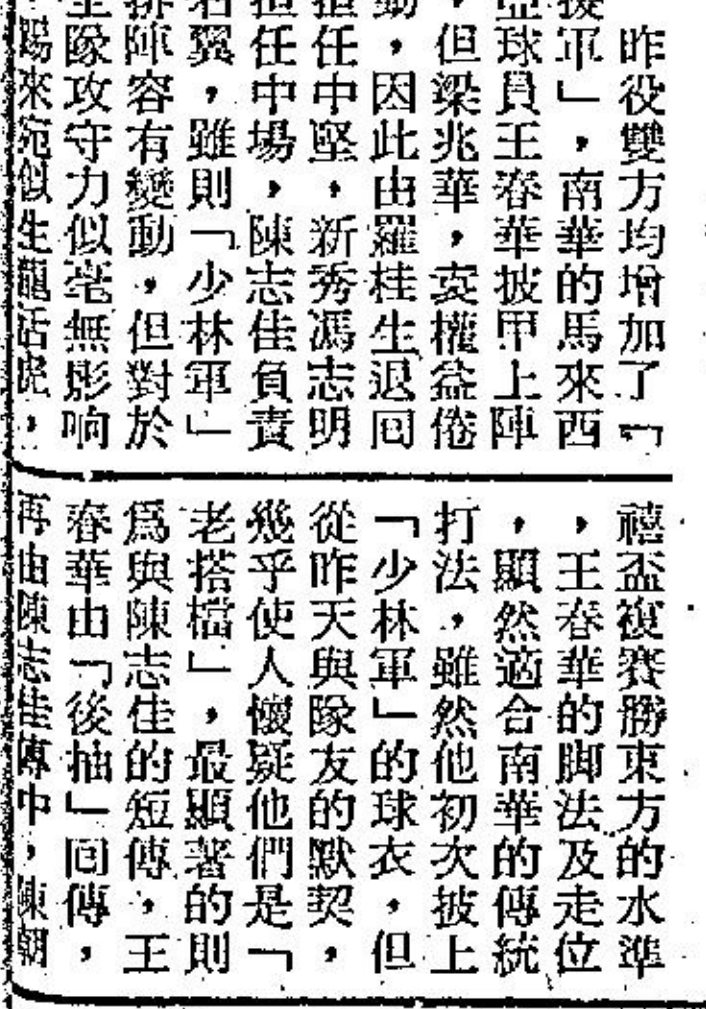 昨役雙方均增加了「
援軍」,南華的馬來西
亞球員王春華披甲上陣
,但梁兆華,袁權益倦
勤,因此由羅桂生退回
担任中堅,新秀馮志明
担任中場,陳志佳負責
右翼,雖則「少林軍」
排陣容有變動,但對於
全隊攻守力似毫無影响
踢來宛似生龍活虎,
禧盃複賽勝東方的水準
,王春華的脚法及走位
,顯然適合南華的傳統
打法,雖然他初次披上
「少林軍」的球衣,但
從昨天與隊友的默契,
幾乎使人懷疑他們是「
老搭檔」,最顯著的則
爲與陳志佳的短傳,王
春華由「後抽」回傳,
再由陳志佳傳中,陳朝